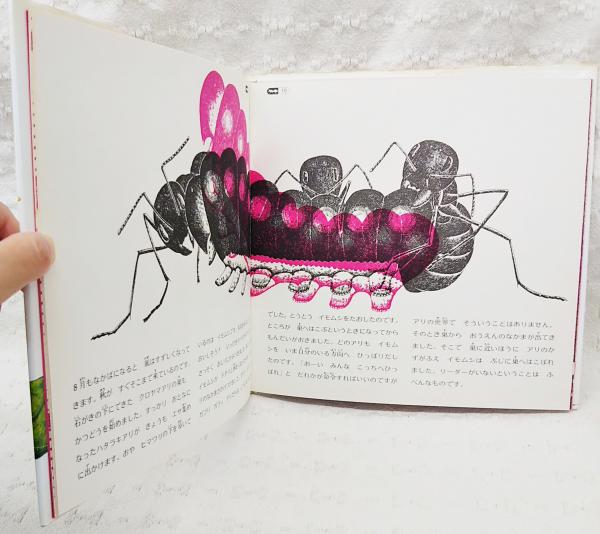 8月もなかばになると 風はすずしくなって
きます。秋が すぐそこまで来ているのです。
石がきの下にできた クロヤマアリの巣も
かつどうを始めました。すっかり おとなに
なったハタラキアリが きょうも エサ集め
に出かけます。おや ヒマワリの下を
いるのは イモムシ
16
でした。とうとう イモムシをたおしたのです。
ところが 巣へはこぶというときになってから
もんだいがおきました。どのアリも イモム
シを いま自分のいる方向へ ひっぱりだし
たのです。「おーい みんな こっちへひっ
ぱれ」と だれかが命令すればいいのですが
アリの世界で そういうことはありません。
そのとき巣から おうえんのなかまが出てき
ました。そこで 巣に近いほうに アリのか
ずがふえ イモムシは ぶじに巣へはこばれ
ました。リーダーがいないということは ふ
べんなものです。